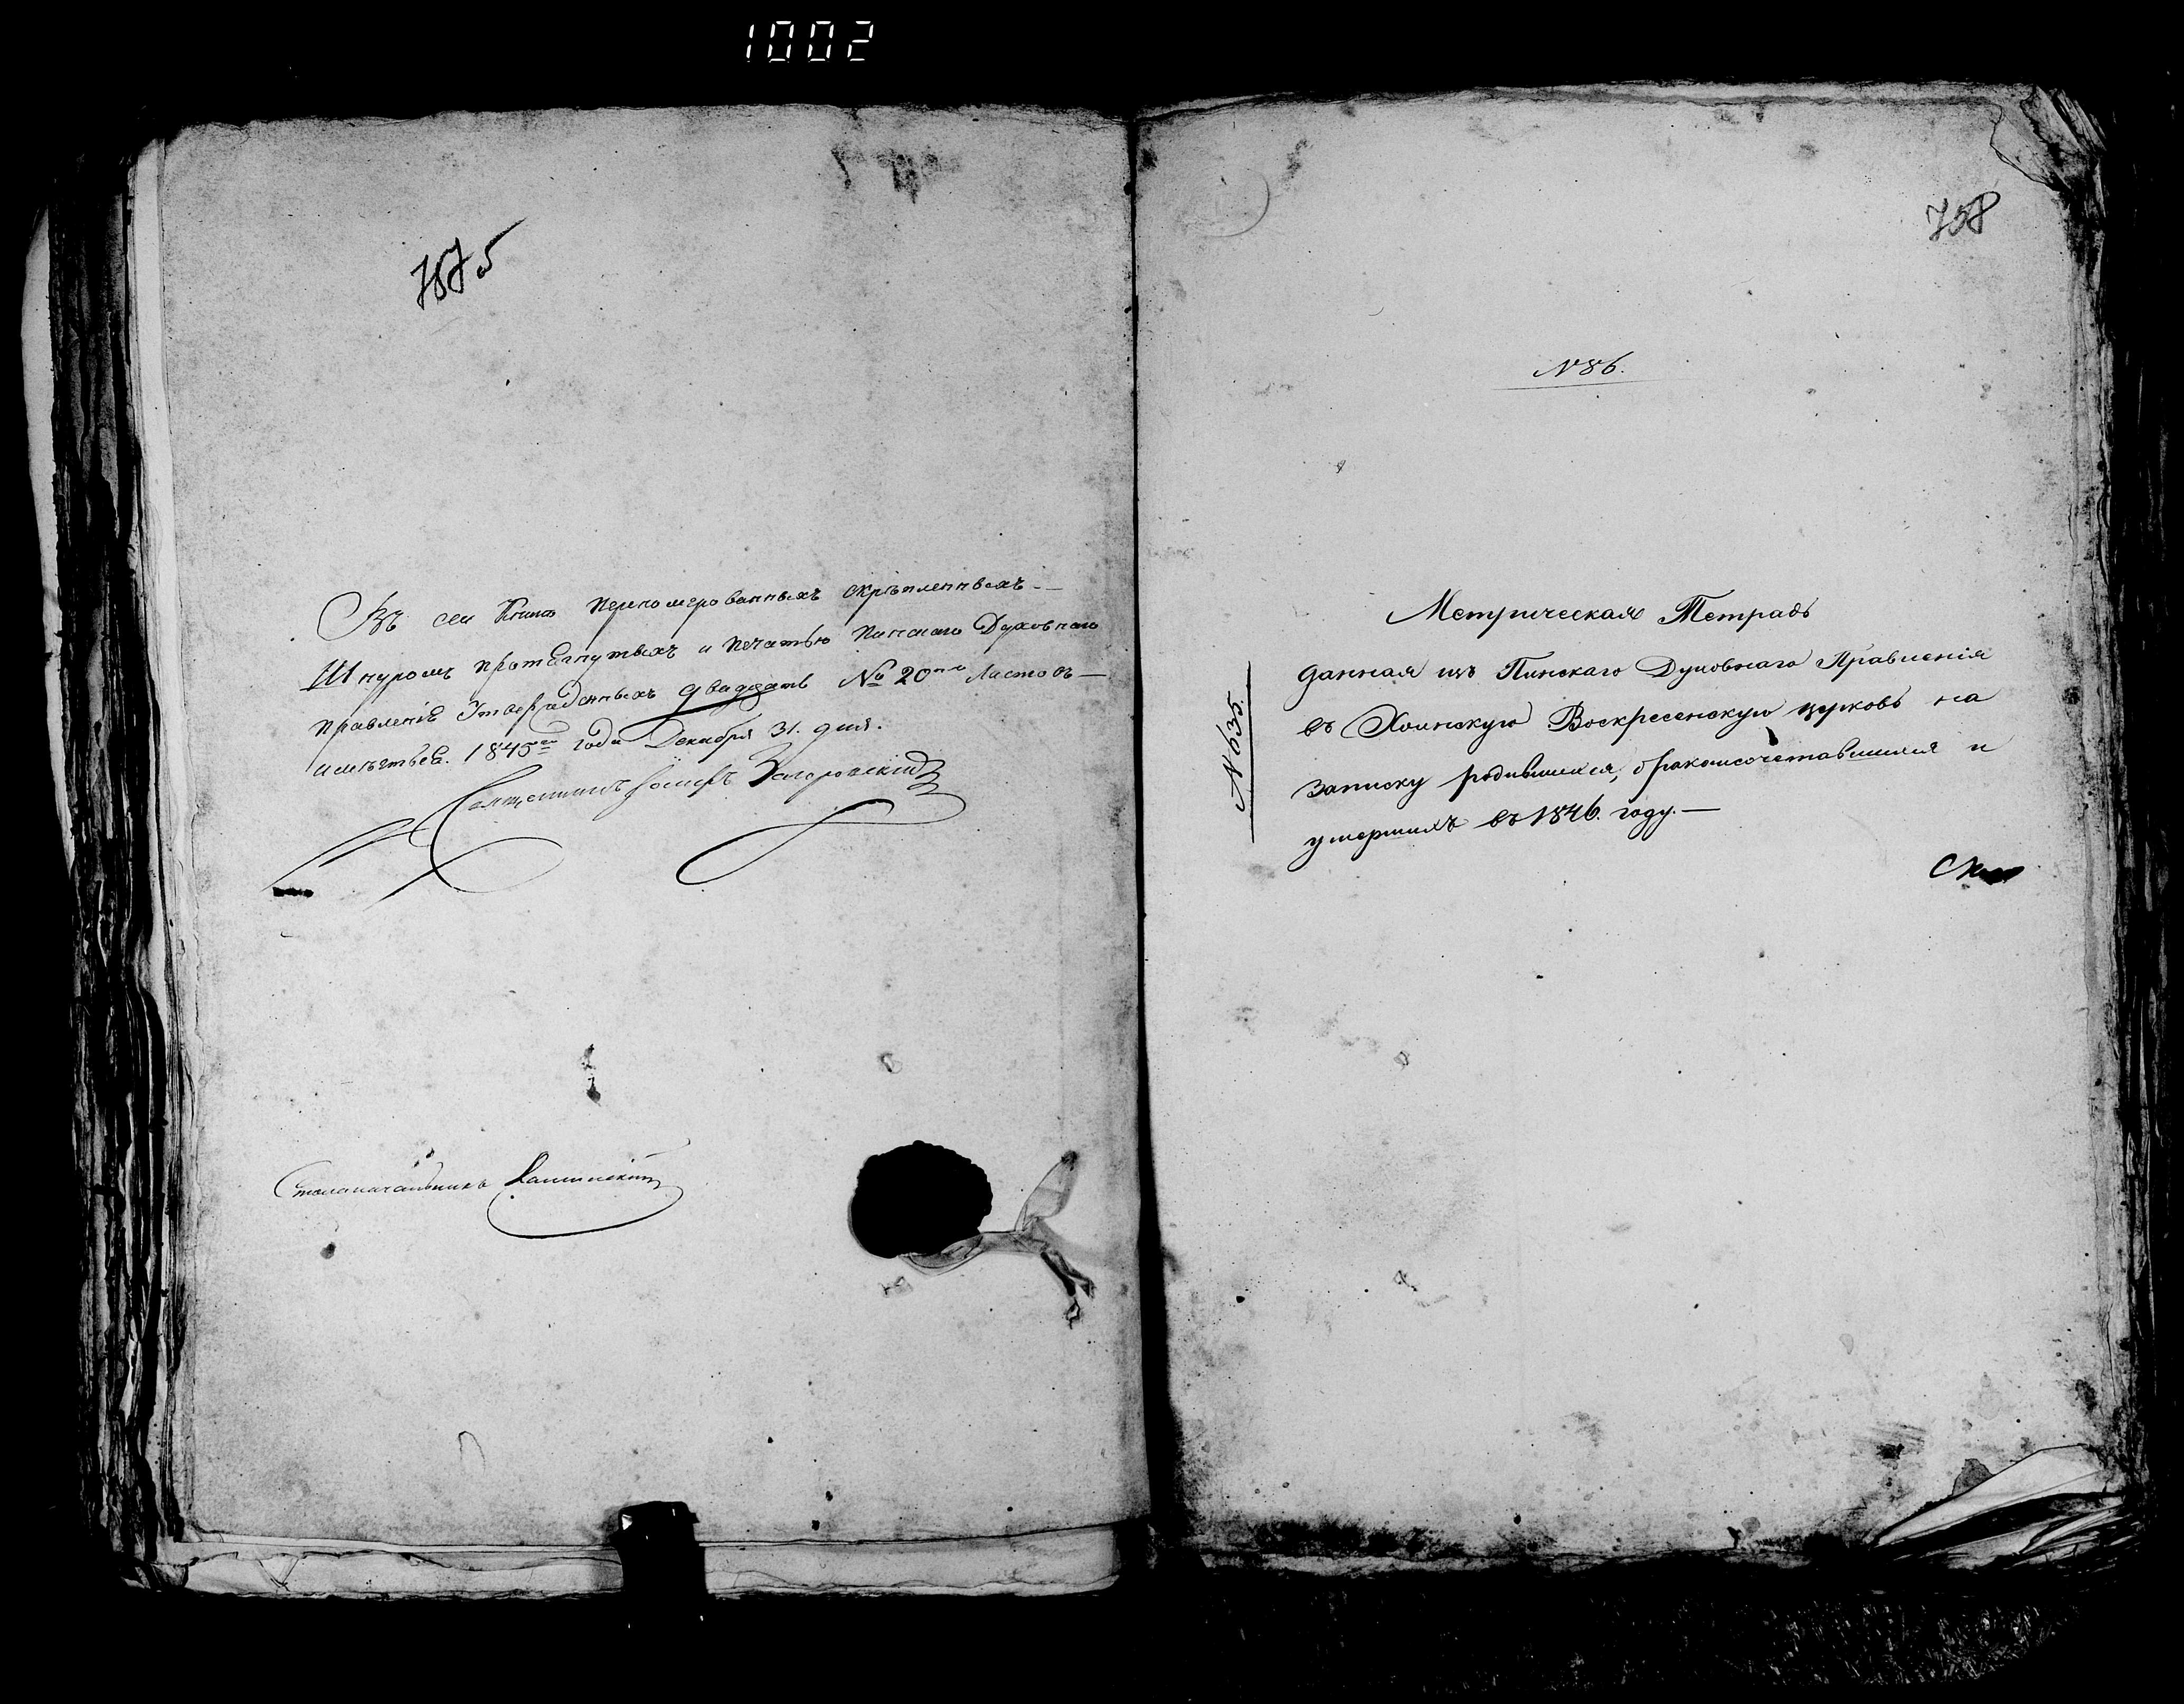 1002
757 об
Въ сей Книгѣ перномерованныхъ скрѣпленныхъ —
Шнуромъ протягнутыхъ и печатью Пинскаго Духовнаго
Правленія Утвержденныхъ двадцать № 20 Листовъ —
имѣется. 1845го года Декабря 31. дня.
Священникъ Іосифъ Загоровскій
Столоначальникъ
758
№ 86.
№ 635.
Метрическая Тетрадь
данная изъ Пинскаго Духовнаго Правленія
въ Хоинскую Воскресенскую церковь на
записку родившихся, бракомсочетавшихся и
умершихъ въ 1846. году. —